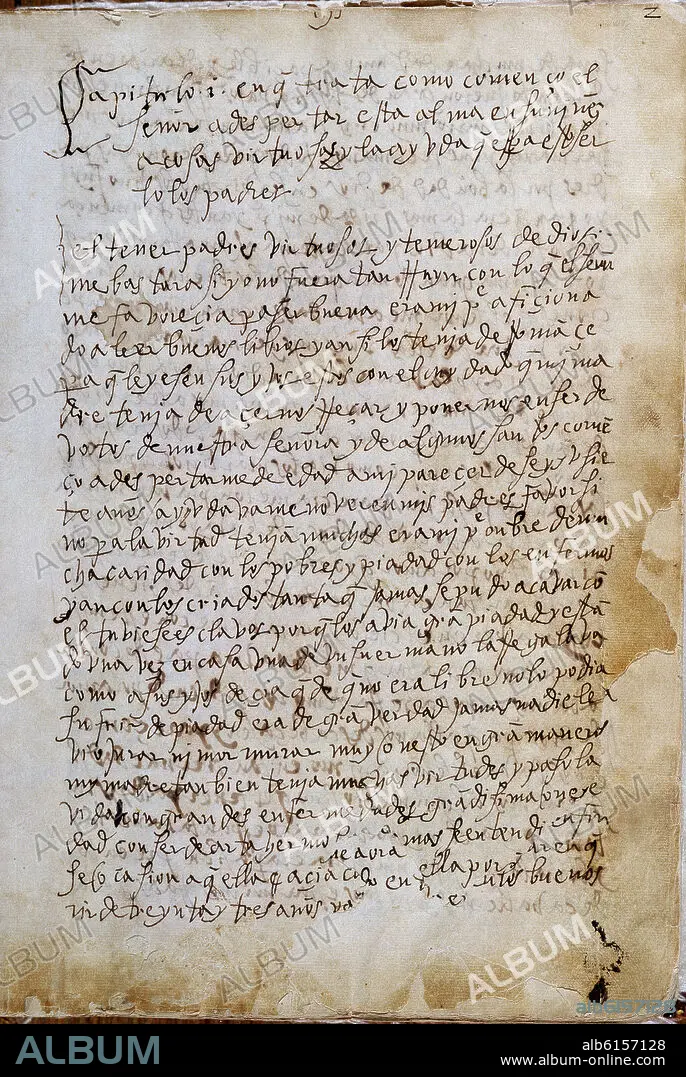 jhs
2
Capitulo 1. en q̄ trata como començo el
señor a despertar esta alma en su niñez
a cosas virtuosas y la ayuda q̄ es pa esto ser
lo los padres
el tener padres virtuosos y temerosos de dios
me bastara si yo no fuera tan rruyn con lo q̄ el señor
me favoreçia pa ser buena era mi pe afiçiona
do a leer buenos libros y ansi los tenia de rromāçe
pa q̄ leyesen sus yjos estos con el cuydad q̄ mi ma
dre tenia de açernos rreçar y ponernos en ser de
votos de nuestra señora y de algunos santos comē
ço a despertarme de edad a mi pareçer de seys u sie
te años ayudavame no ver en mis padres favor si
no pa la virtud tenian muchas era mi pe onbre de mu
cha caridad con los pobres y piadad con los enfermos
y aun con los criados tanta q̄ jamas se pudo acavar cō
el tuviese esclavos porq̄ los avia grā piadad y estā
do una vez en casa una de un su ermano la rregalava
como a sus yjos deçia q̄ de q̄ no era libre no lo podia
sufrir de piadad era de grā verdad jamas nadie le
vio jurar ni mormurar muy onesto en grā manera
mi madre tanbien tenia muchas virtudes y paso la
vida con grandes enfermedades grādisima onesti
dad con ser de arta hermosura
jamas se entendio
diese ocasion a que ella haçia caso
de treynta y tres años
ALBUM
alb6157128
ALBUM
alb6157128
www.album-online.com